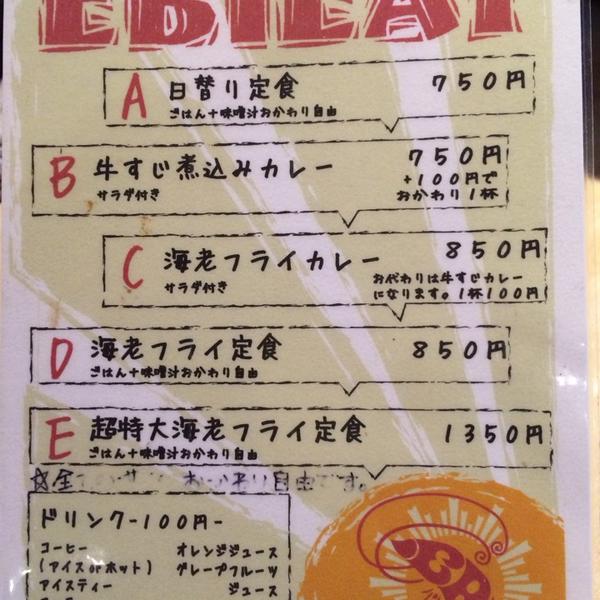 EBIEAT
A 日替り定食 750円
ごはん+味噌汁おかわり自由
B 牛すじ煮込みカレー 750円
サラダ付き
+100円で
おかわり1杯
C 海老フライカレー 850円
サラダ付き
お代わりは牛すじカレー
になります。1杯100円
D 海老フライ定食 850円
ごはん+味噌汁おかわり自由
E 超特大海老フライ定食 1350円
ごはん+味噌汁おかわり自由
自由です。
ドリンク-100円-
コーヒー オレンジジュース
(アイスorホット) グレープフルーツ
アイスティー ジュース